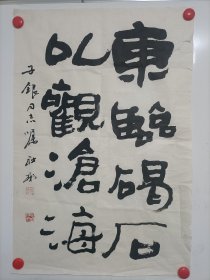 東臨碣石
以觀滄海
子銀同志嘱